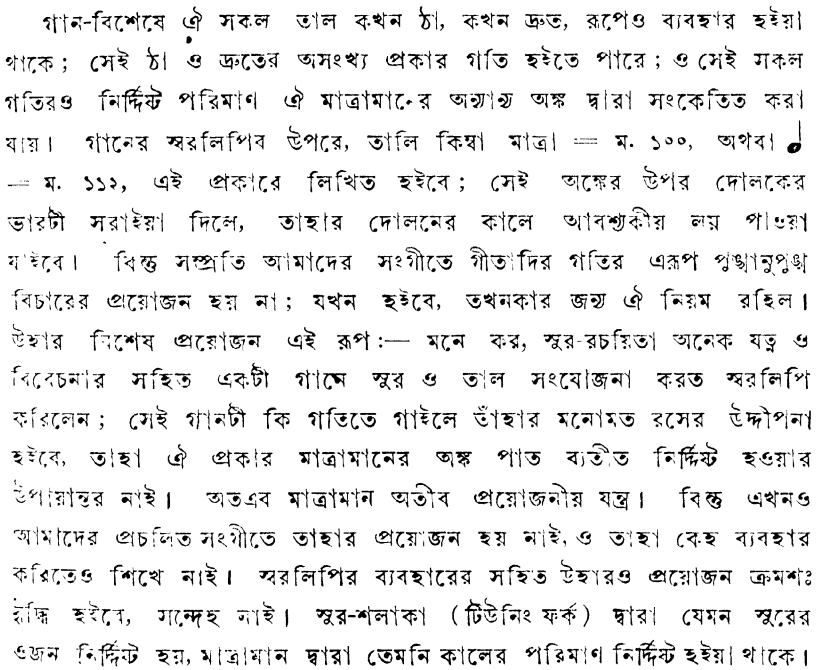 গান-বিশেষে ঐ সকল তাল কখন ঠা, কখন দ্রুত, রূপেও ব্যবহার হইয়া
থাকে ; সেই ঠা ও দ্রুতের অসংখ্য প্রকার গতি হইতে পারে ; ও সেই সকল
গতিরও নির্দ্দিষ্ট পরিমাণ ঐ মাত্রামানের অন্যান্য অঙ্ক দ্বারা সংকেতিত করা
যায়। গানের স্বরলিপির উপরে, তালি কিম্বা মাত্রা = ম. ১০০, অথবা ♩
= ম. ১১২, এই প্রকারে লিখিত হইবে ; সেই অঙ্কের উপর দোলকের
ভারটী সরাইয়া দিলে, তাহার দোলনের কালে আবশ্যকীয় লয় পাওয়া
যাইবে। কিন্তু সম্প্রতি আমাদের সংগীতে গীতাদির গতির এরূপ পুঙ্খানুপুঙ্খ
বিচারের প্রয়োজন হয় না ; যখন হইবে, তখনকার জন্য ঐ নিয়ম রহিল।
উহার বিশেষ প্রয়োজন এই রূপ :— মনে কর, সুর-রচয়িতা অনেক যত্ন ও
বিবেচনার সহিত একটী গানে সুর ও তাল সংযোজনা করত স্বরলিপি
করিলেন ; সেই গানটী কি গতিতে গাইলে তাঁহার মনোমত রসের উদ্দীপনা
হইবে, তাহা ঐ প্রকার মাত্রামানের অঙ্ক পাত ব্যতীত নির্দ্দিষ্ট হওয়ার
উপায়ান্তর নাই। অতএব মাত্রামান অতীব প্রয়োজনীয় যন্ত্র। কিন্তু এখনও
আমাদের প্রচলিত সংগীতে তাহার প্রয়োজন হয় নাই, ও তাহা কেহ ব্যবহার
করিতেও শিখে নাই। স্বরলিপির ব্যবহারের সহিত উহারও প্রয়োজন ক্রমশঃ
বৃদ্ধি হইবে, সন্দেহ নাই। সুর-শলাকা (টিউনিং ফর্ক) দ্বারা যেমন সুরের
ওজন নির্দ্দিষ্ট হয়, মাত্রামান দ্বারা তেমনি কালের পরিমাণ নির্দ্দিষ্ট হইয়া থাকে।